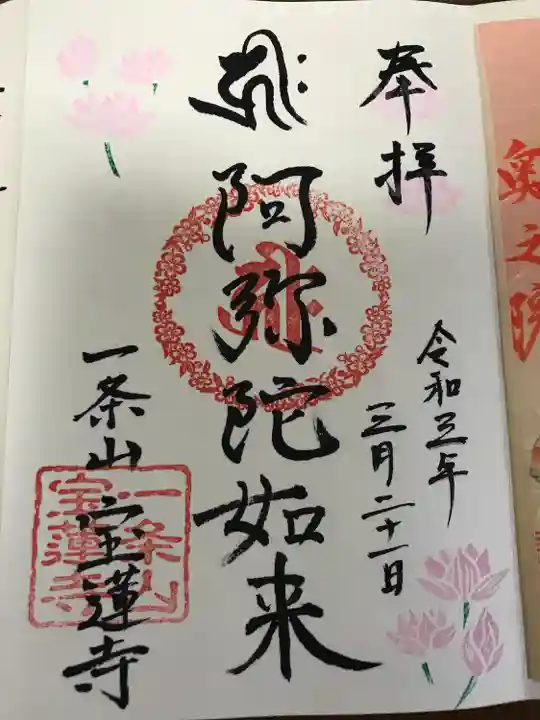 奥之院
奉拝
令和三年
三月二十一日
𑖮𑖿𑖨𑖱𑖾
阿弥陀如来
一条山 宝蓮寺
一条山
宝蓮寺